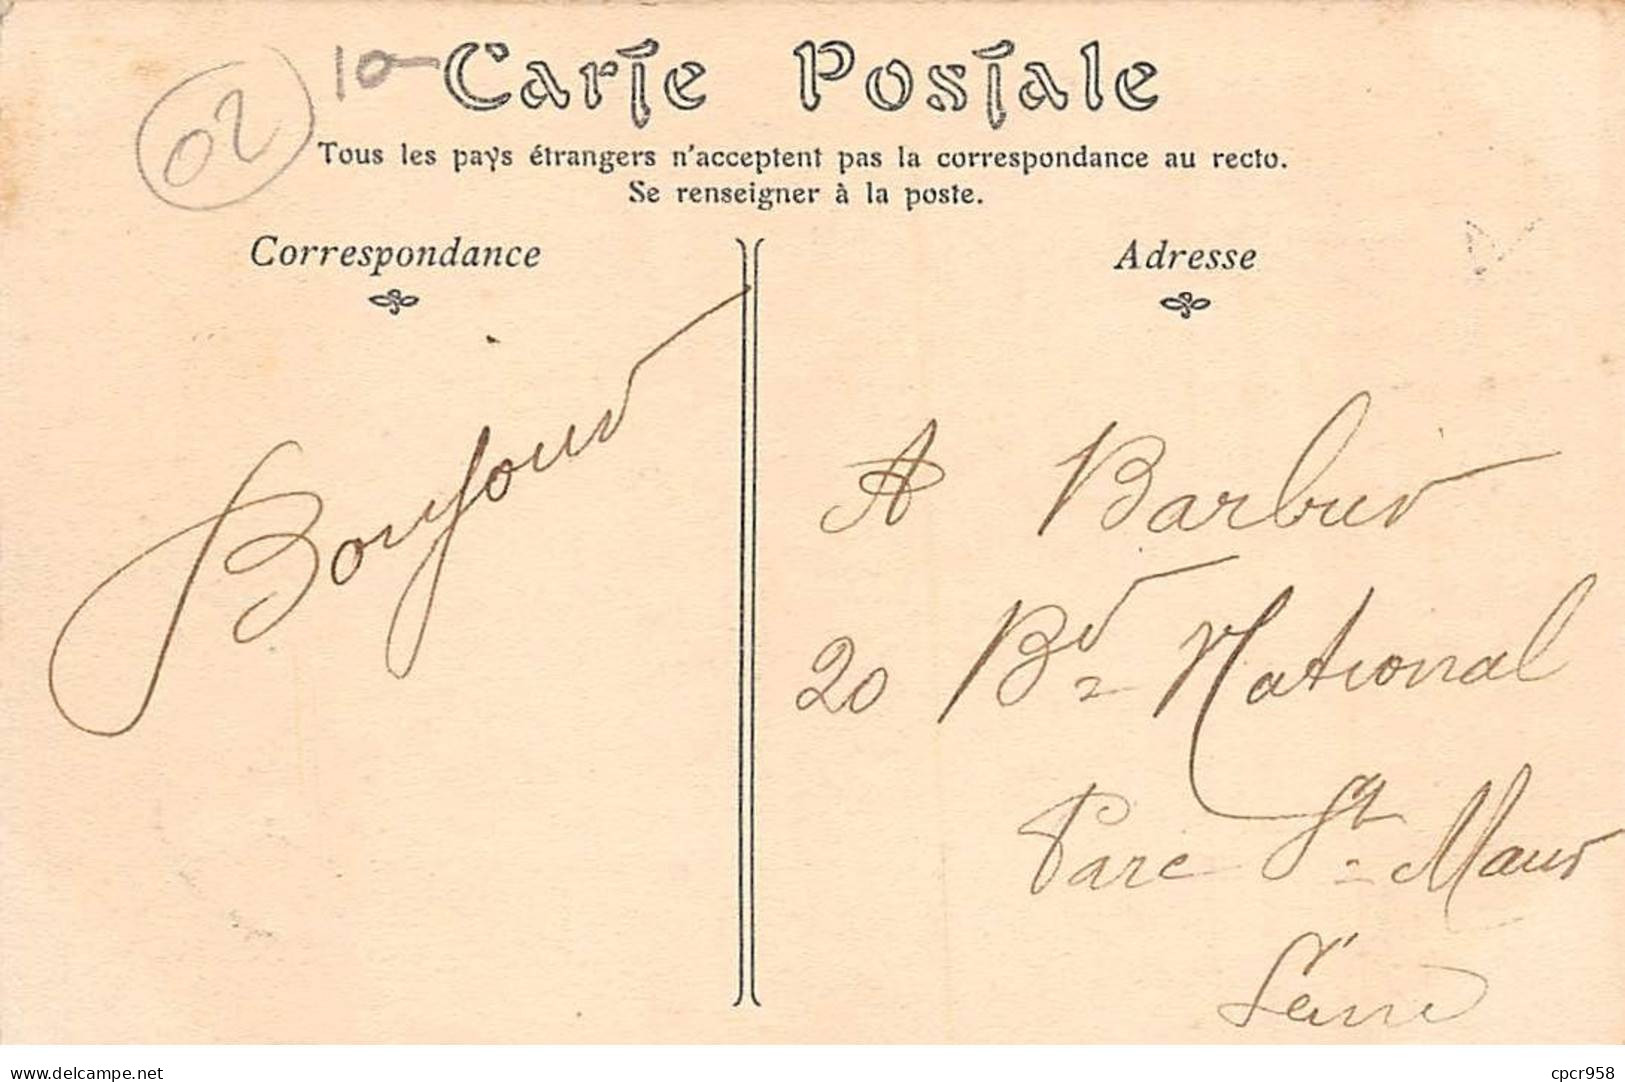 02
10-
Carte Postale
Tous les pays étrangers n'acceptent pas la correspondance au recto.
Se renseigner à la poste.
Correspondance
Bonjour
Adresse
A Barbier
20 Bd National
Parc St Maur
Seine
www.delcampe.net
cpcr958